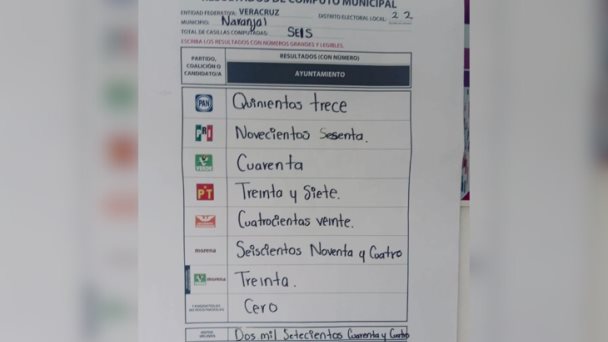 RESULTADOS DE CÓMPUTO MUNICIPAL
ENTIDAD FEDERATIVA: VERACRUZ
DISTRITO ELECTORAL LOCAL: 22
MUNICIPIO: Naranjal
TOTAL DE CASILLAS COMPUTADAS: SEIS
ESCRIBA LOS RESULTADOS CON NÚMEROS GRANDES Y LEGIBLES.
PARTIDO, COALICIÓN O CANDIDATO/A
RESULTADOS (CON NÚMERO)
AYUNTAMIENTO
PAN Quinientos trece
PRI Novecientos Sesenta.
VERDE Cuarenta
PT Treinta y Siete.
Cuatrocientos veinte.
morena Seiscientos Noventa y Cuatro
morena Treinta.
Cero
Dos mil Setecientos Cuarenta y Cuatro